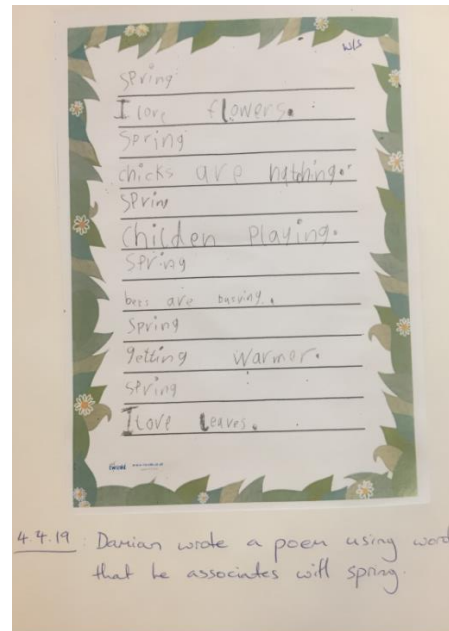 W/S
Spring
I love flowers.
Spring
chicks are hatching.
Spring
Childen Playing.
Spring
bees are buzzing.
Spring
getting warmer.
Spring
I love leaves.
4.4.19: Damian wrote a poem using word
that he associates with spring.